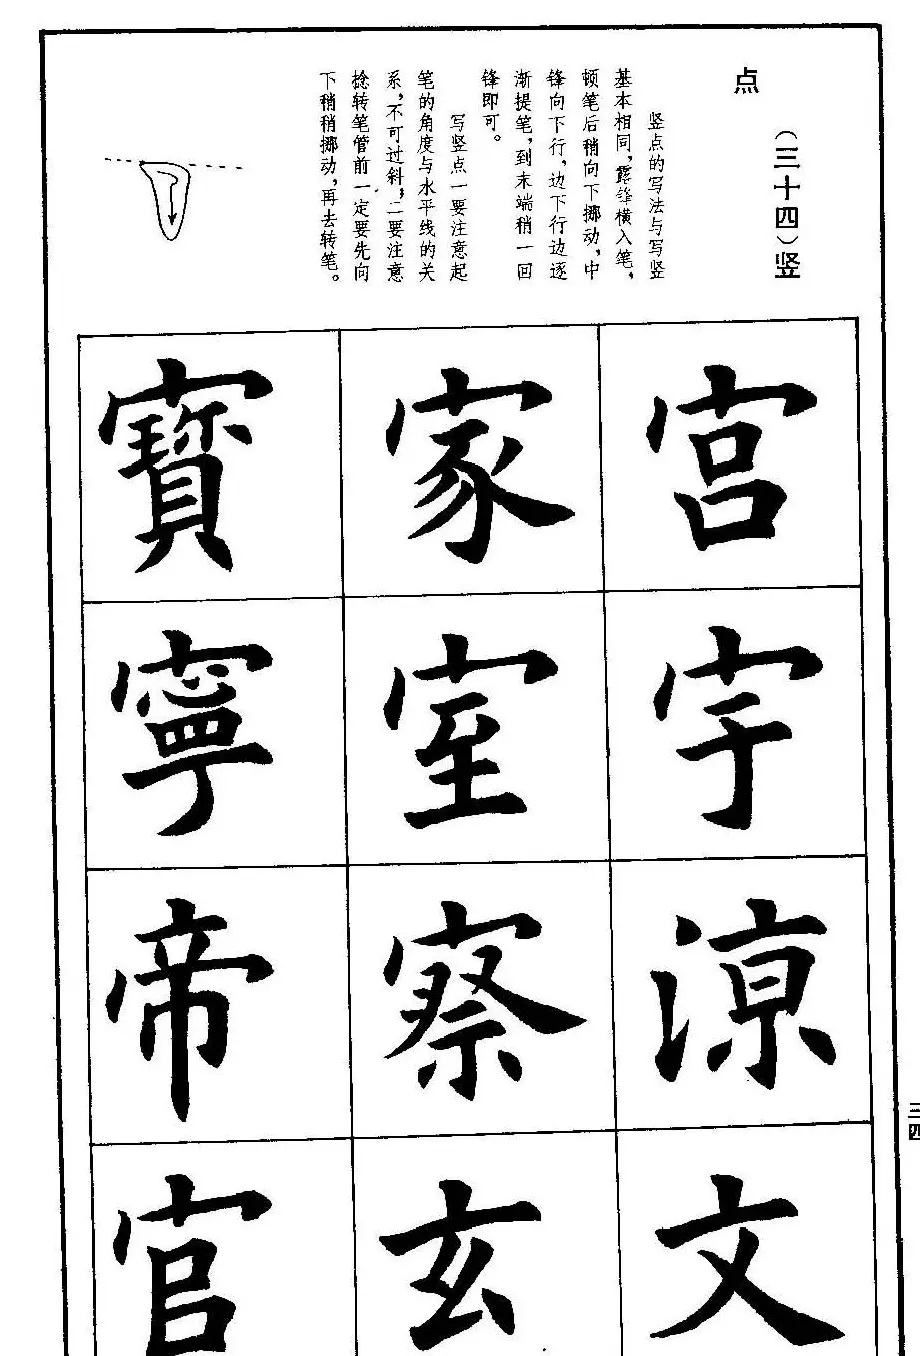 （三十四）竖
点
竖点的写法与写竖
基本相同，露锋横入笔，
顿笔后稍向下挪动，中
锋向下行，边下行边逐
渐提笔，到末端稍一回
锋即可。
写竖点一要注意起
笔的角度与水平线的关
系，不可过斜；二要注意
捻转笔管前一定要先向
下稍稍挪动，再去转笔。
宫
宇
涼
文
家
室
察
玄
寶
寧
帝
官
三四